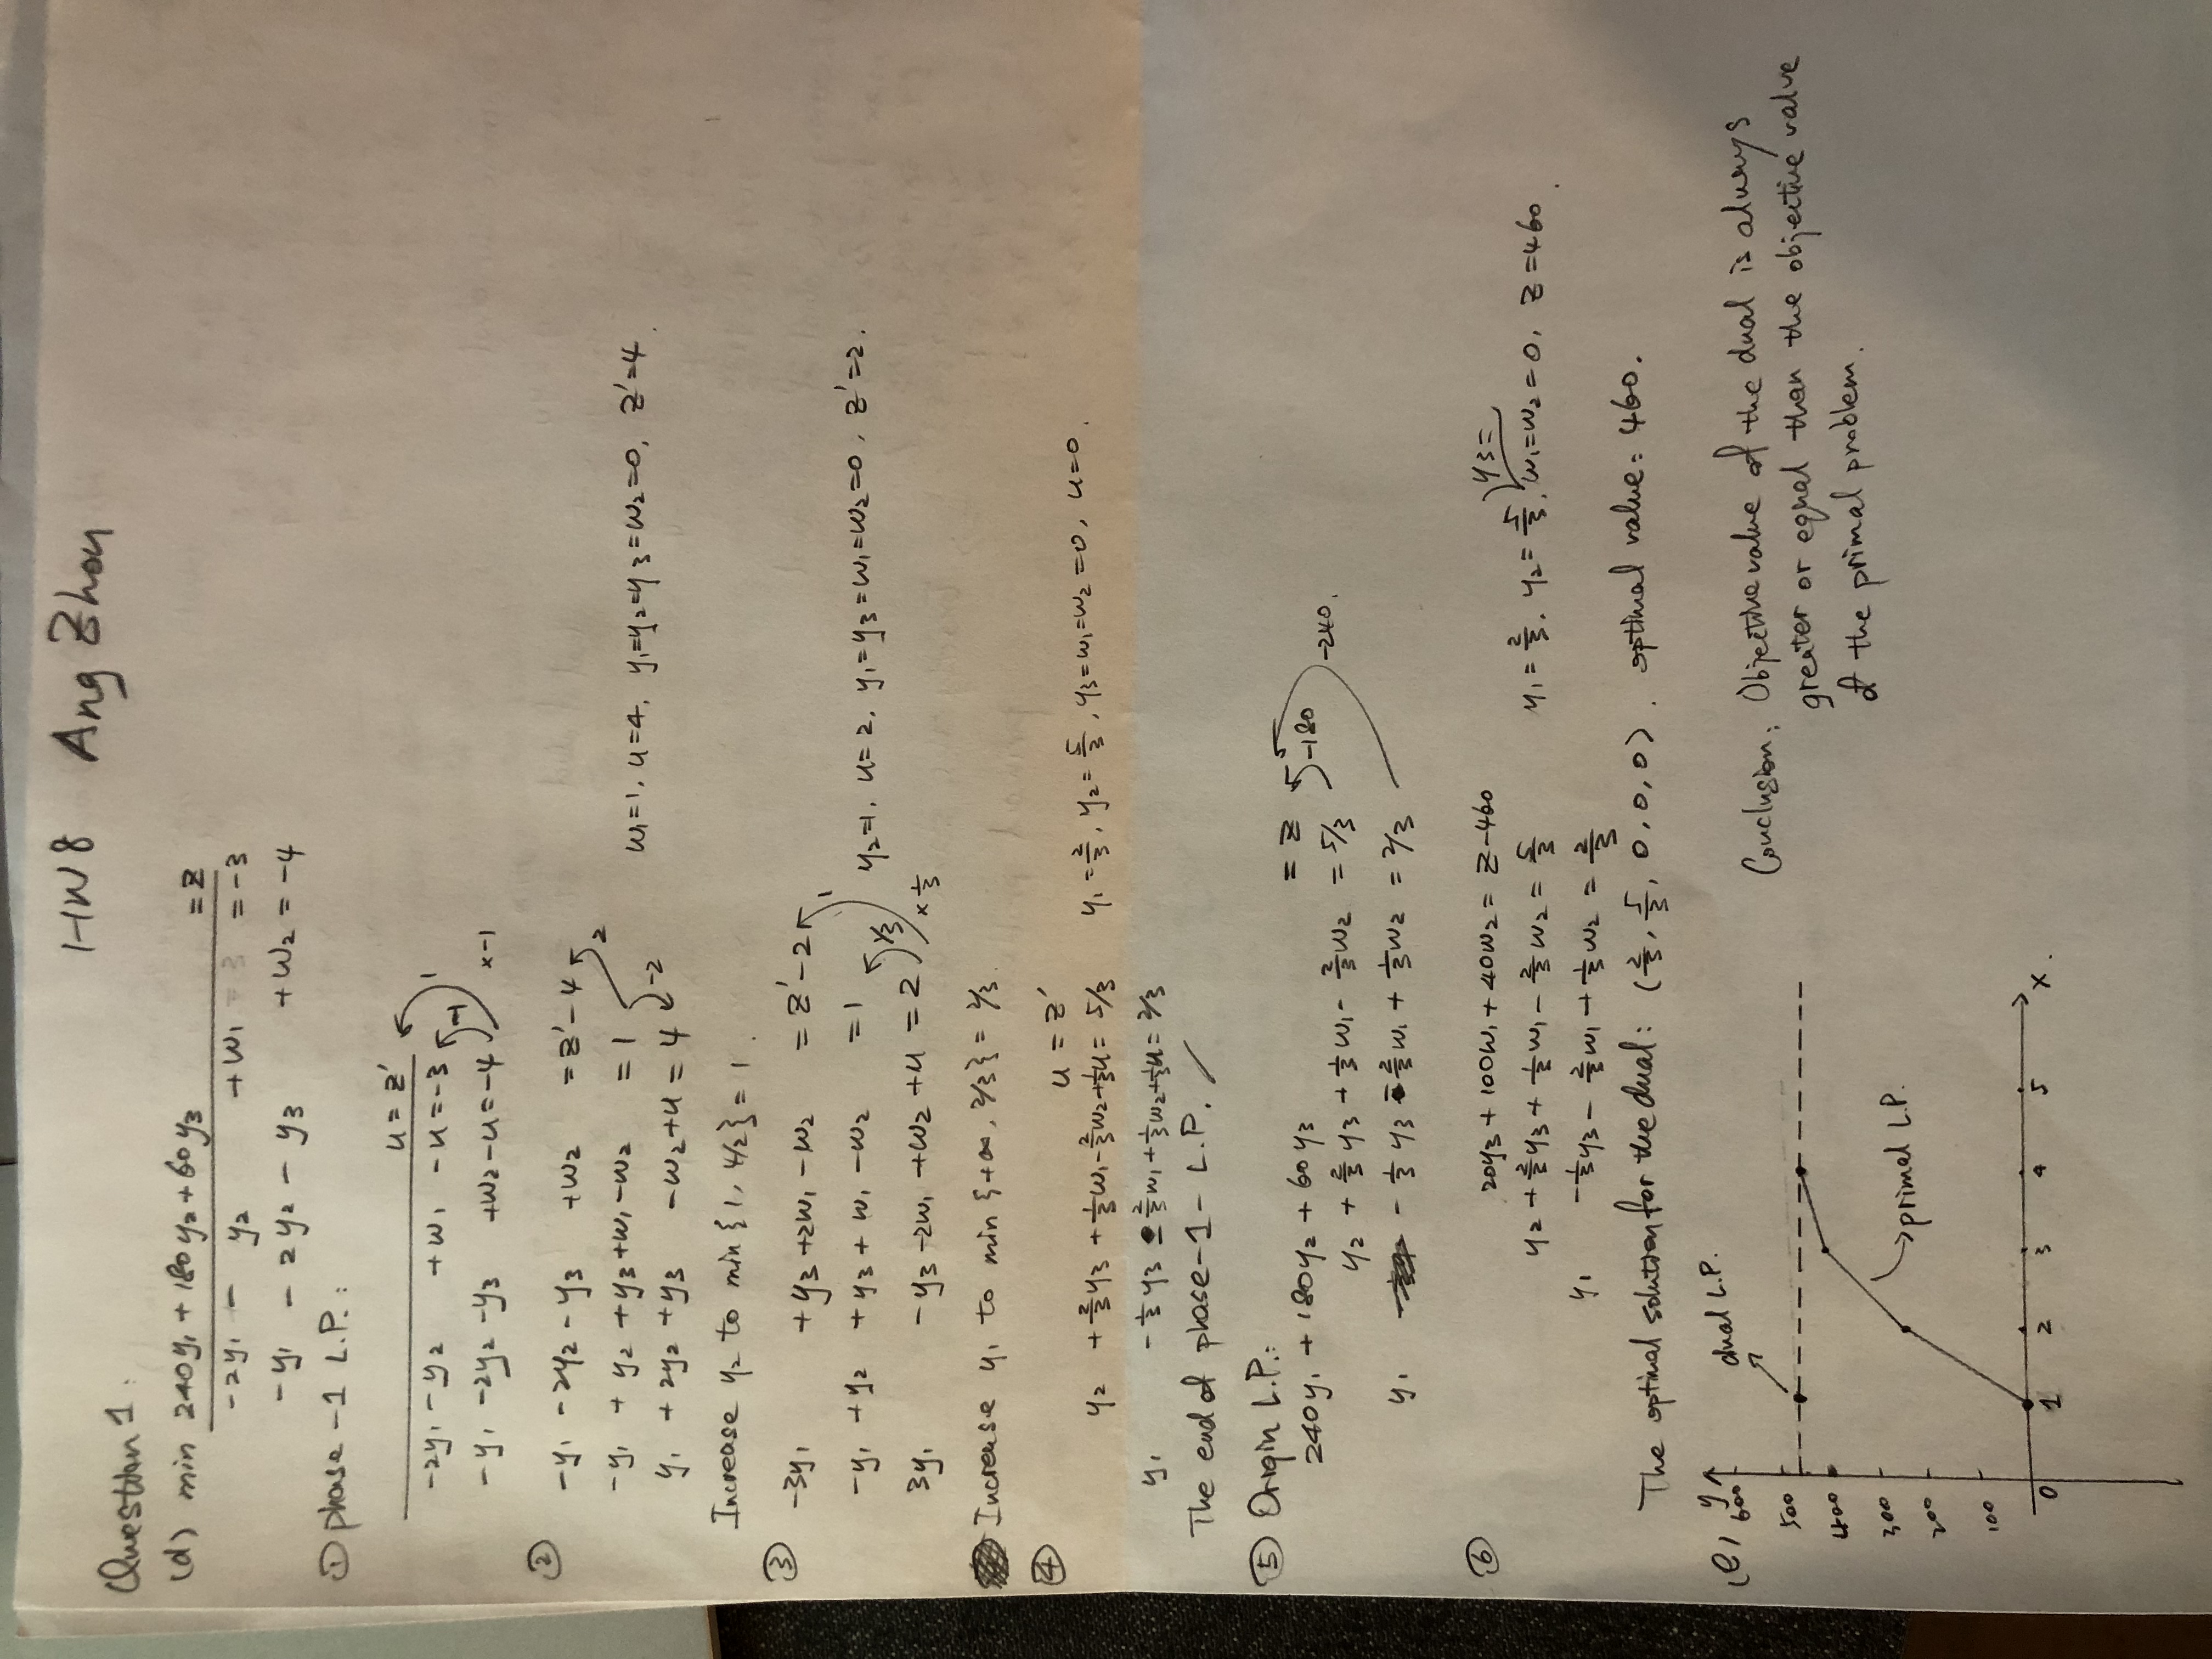 HW8 Ang Zhou
Question 1:
(d) min 240y₁ + 180y₂ + 60y₃ = z
-2y₁ - y₂ + w₁ = -3
-y₁ - 2y₂ - y₃ + w₂ = -4
① phase-1 L.P.:
u = z'
-2y₁ - y₂ + w₁ - u = -3 -1 1
-y₁ - 2y₂ - y₃ + w₂ - u = -4 ×-1
②
-y₁ - 2y₂ - y₃ + w₂ = z' - 4 2
-y₁ + y₂ + y₃ + w₁ - w₂ = 1 w₁=1, u=4, y₁=y₂=y₃=w₂=0, z'=4.
y₁ + 2y₂ + y₃ - w₂ + u = 4 -2
Increase y₂ to min {1, 4/2} = 1.
③ -3y₁ + y₃ + 2w₁ - w₂ = z' - 2 1
-y₁ + y₂ + y₃ + w₁ - w₂ = 1 1/3 y₂=1, u=2, y₁=y₃=w₁=w₂=0, z'=2.
3y₁ - y₃ - 2w₁ + w₂ + u = 2 × 1/3
Increase y₁ to min {+∞, 2/3} = 2/3.
④ u = z'
y₂ + 2/3 y₃ + 1/3 w₁ - 2/3 w₂ + 1/3 u = 5/3 y₁ = 2/3, y₂ = 5/3, y₃=w₁=w₂=0, u=0.
y₁ - 1/3 y₃ - 2/3 w₁ + 1/3 w₂ + 1/3 u = 2/3
The end of phase-1- L.P.
⑤ Origin L.P.:
240y₁ + 180y₂ + 60y₃ = z -180
y₂ + 2/3 y₃ + 1/3 w₁ - 2/3 w₂ = 5/3 -240.
y₁ - 1/3 y₃ - 2/3 w₁ + 1/3 w₂ = 2/3
⑥ 20y₃ + 100w₁ + 40w₂ = z - 460
y₂ + 2/3 y₃ + 1/3 w₁ - 2/3 w₂ = 5/3 y₁ = 2/3, y₂ = 5/3, y₃= w₁=w₂=0, z=460.
y₁ - 1/3 y₃ - 2/3 w₁ + 1/3 w₂ = 2/3
The optimal solution for the dual: (2/3, 5/3, 0, 0, 0). optimal value: 460.
(e) y
600
500
400
300
200
100
0 1 2 3 4 5 x.
dual L.P.
primal L.P.
Conclusion: Objective value of the dual is always
greater or equal than the objective value
of the primal problem.